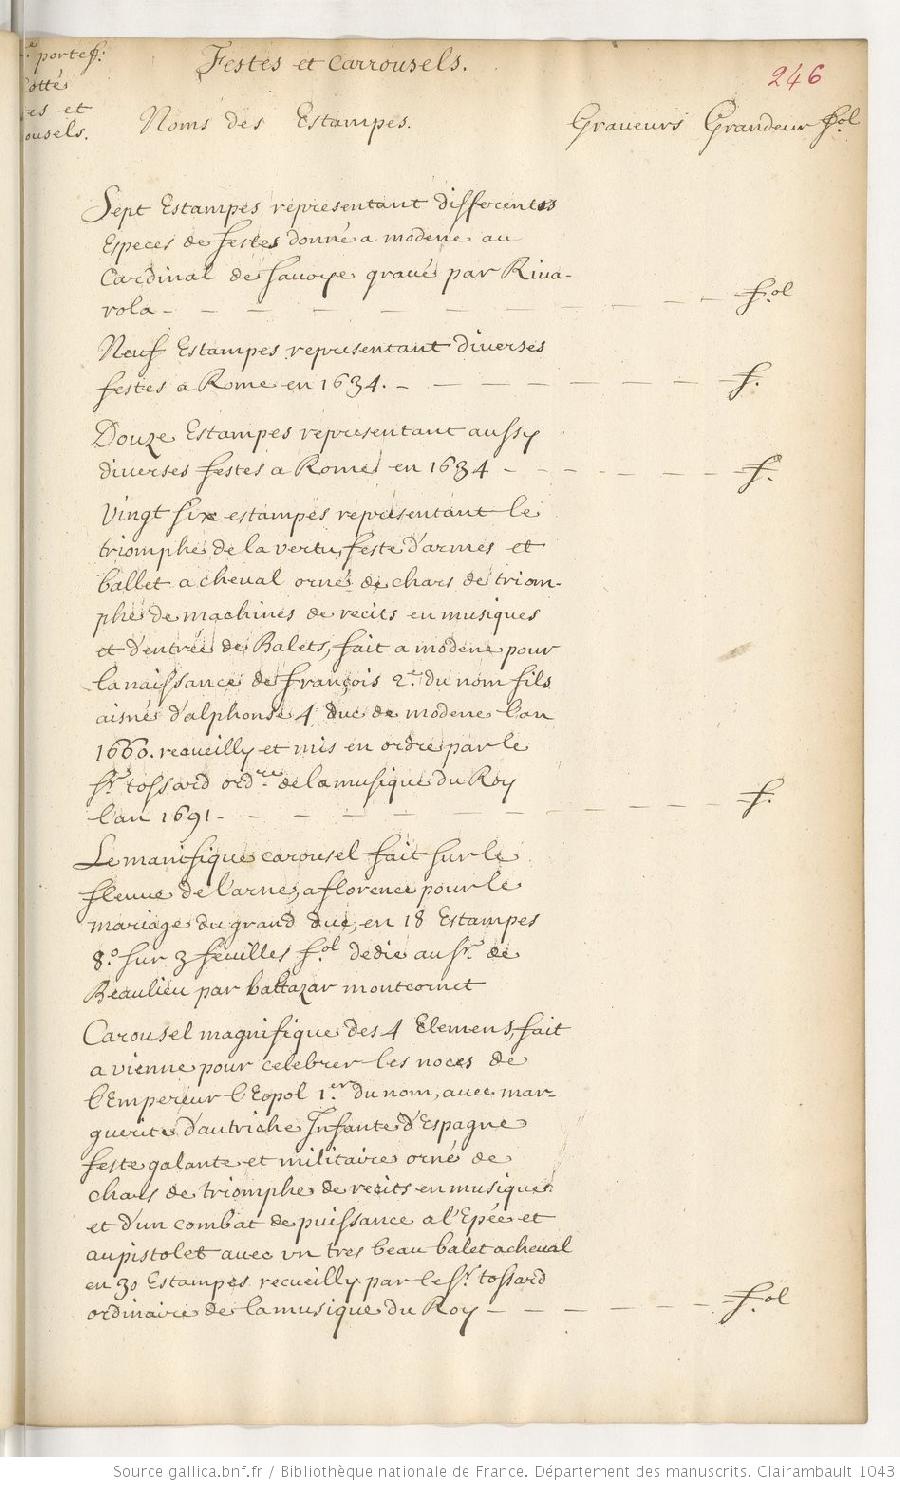 e portef:
cotté
es et
ousels.
Festes et Carrousels.
246
Noms des Estampes. Graveurs Grandeur fol
Sept Estampes representant differentes
Especes de festes donné a modene au
Cardinal de Savoye gravé par Riva-
rola - - - - - - - fol
Neuf Estampes representant diverses
festes a Rome en 1634. - - - - f.
Douze Estampes representant aussy
diverses festes a Rome en 1634 - - - - f.
Vingt six estampes representant le
triomphe de la vertu, feste d'armes et
ballet a cheval orné de chars de triom-
phe de machines de recits en musiques
et d'entrée de Balets, fait a modene pour
la naissance de françois 2.e du nom fils
aisné d'alphonse 4 duc de modene l'an
1660. recueilly et mis en ordre par le
Sr. tossard ord.re de la musique du Roy
l'an 1691 - - - - - - f.
Le manifique carousel fait sur le
fleuve de l'arne, a florence pour le
mariage du grand duc, en 18 Estampes
8.o sur 3 feuilles f.ol dedié au Sr. de
Beaulieu par baltazar montcornet
Carousel magnifique des 4 Elemens, fait
a vienne pour celebrer les noces de
l'Empereur l'Eopol 1.er du nom, avec mar-
guerite d'autriche Infante d'Espagne
feste galante et militaire orné de
chars de triomphe de recits en musiques
et d'un combat de puissance a l'Epée et
au pistolet avec un tres beau balet a cheval
en 30 Estampes recueilly par le Sr. tossard
ordinaire de la musique du Roy - - - - - f.ol
Source gallica.bnf.fr / Bibliothèque nationale de France. Département des manuscrits. Clairambault 1043